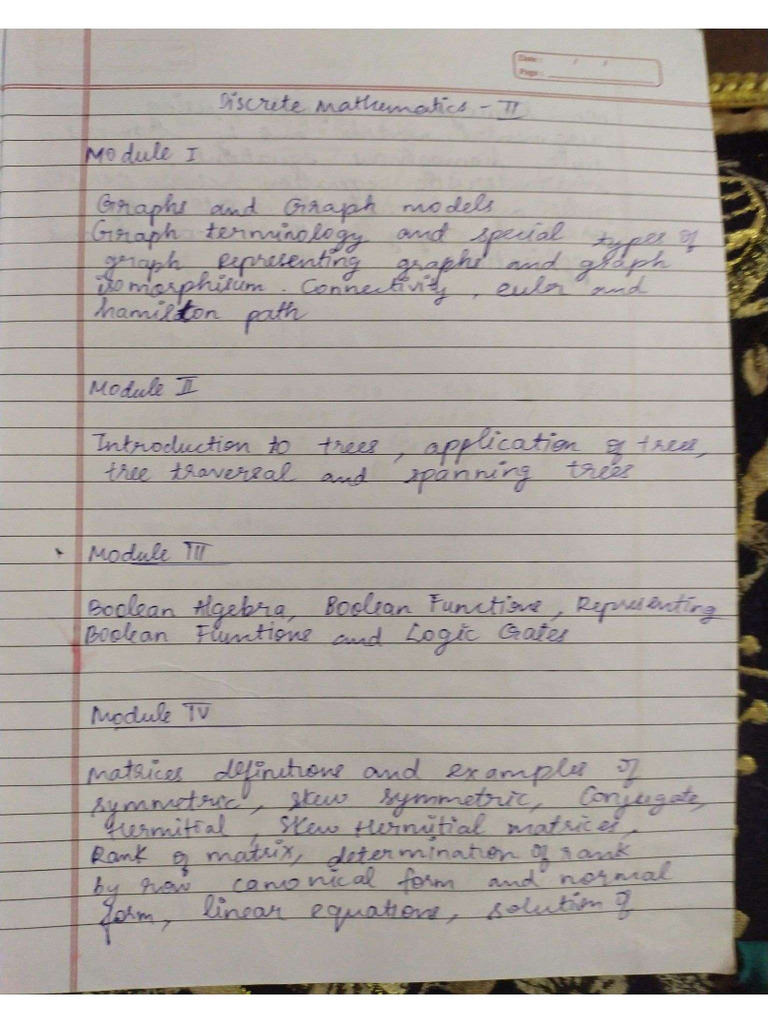 Date : / /
Page :
Discrete Mathematics - II
Module I
Graphs and Graph models
Graph terminology and special types of
graph representing graphs and graph
isomorphisum. Connectivity, euler and
hamilton path
Module II
Introduction to trees, application of trees,
tree traversal and spanning trees
Module III
Boolean Algebra, Boolean Functions, Representing
Boolean Fluntions and Logic Gates
Module IV
Matrices definitions and examples of
symmetric, skew symmetric, Conjugate,
Hermitial, Skew Hermitial matrices,
Rank of matrix, determination of rank
by row canonical form and normal
form, linear equations, solution of